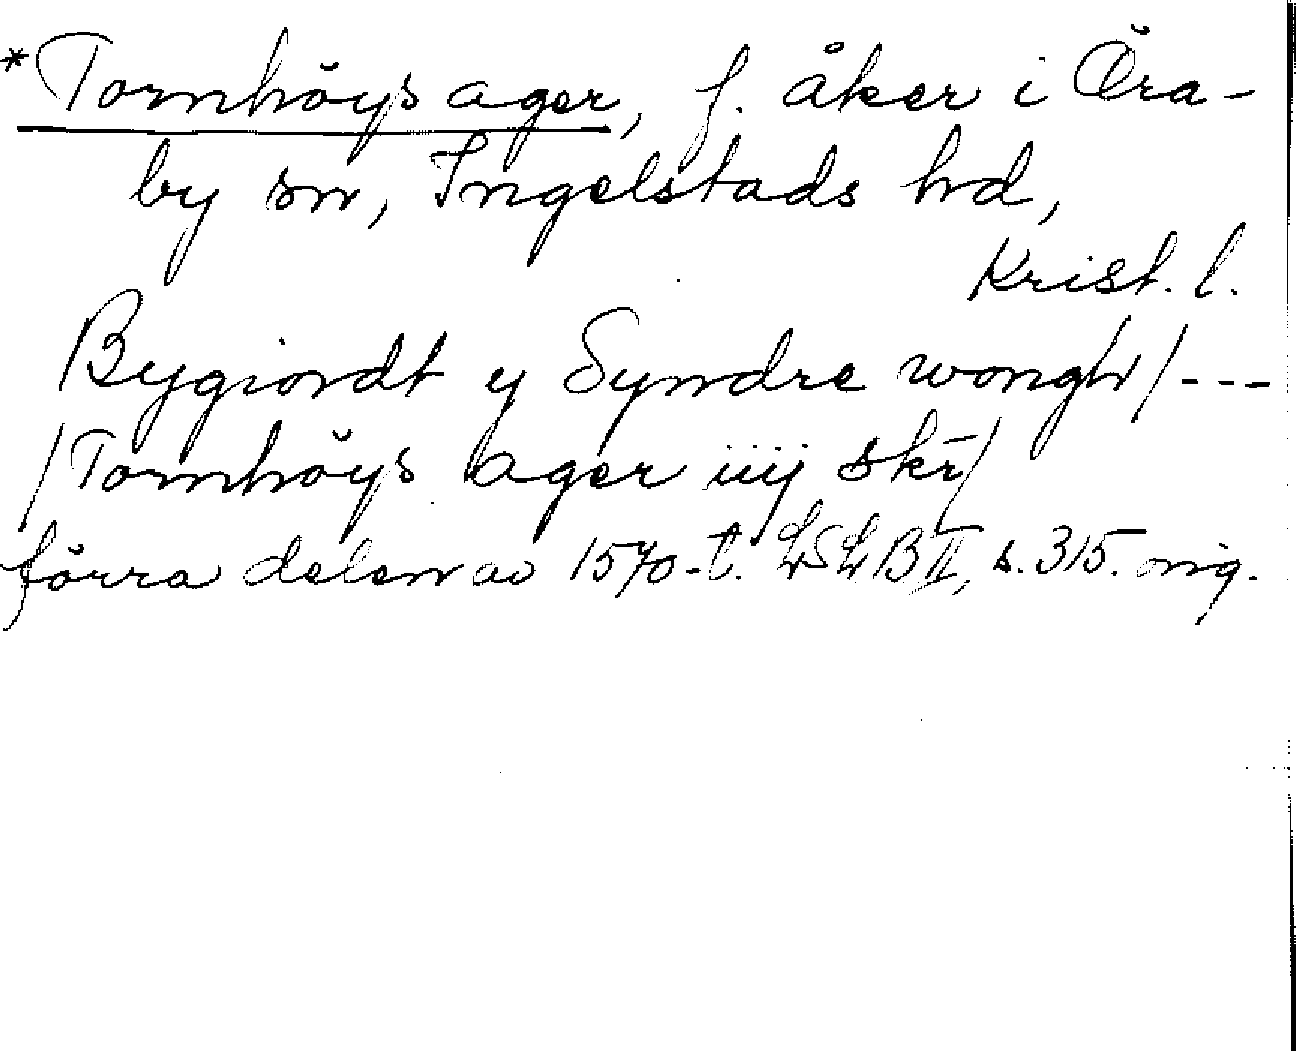 *Tornhöys ager, f. åker i Öra-
by sn, Ingelstads hd,
Krist. l.
Bygiordt y Syndre wongh/---
/Tornhöys ager iiij skr/
förra delen av 1570-t. LSLB II, s. 315. orig.